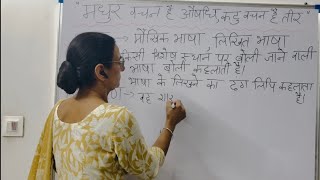 "मधुर वचन है औषधि, कटु वचन है तीर"
मौखिक भाषा लिखित भाषा
पर बोली जाने वाली
भाषा बोली कहलाती है।
भाषा के लिखने का ढंग लिपि कहलाता
है।
वह